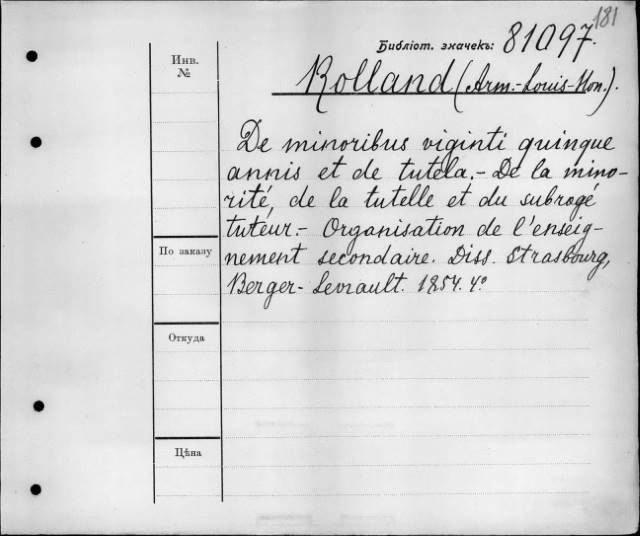 181
Библіот. значекъ: 81097.
Инв. №
Rolland (Arm.-Louis-Hon.).
De minoribus viginti quinque
annis et de tutela. - De la mino-
rité, de la tutelle et du subrogé
tuteur. - Organisation de l'enseig-
nement secondaire. Diss. Strasbourg,
Berger-Levrault. 1854. 4°
По заказу
Откуда
Цѣна